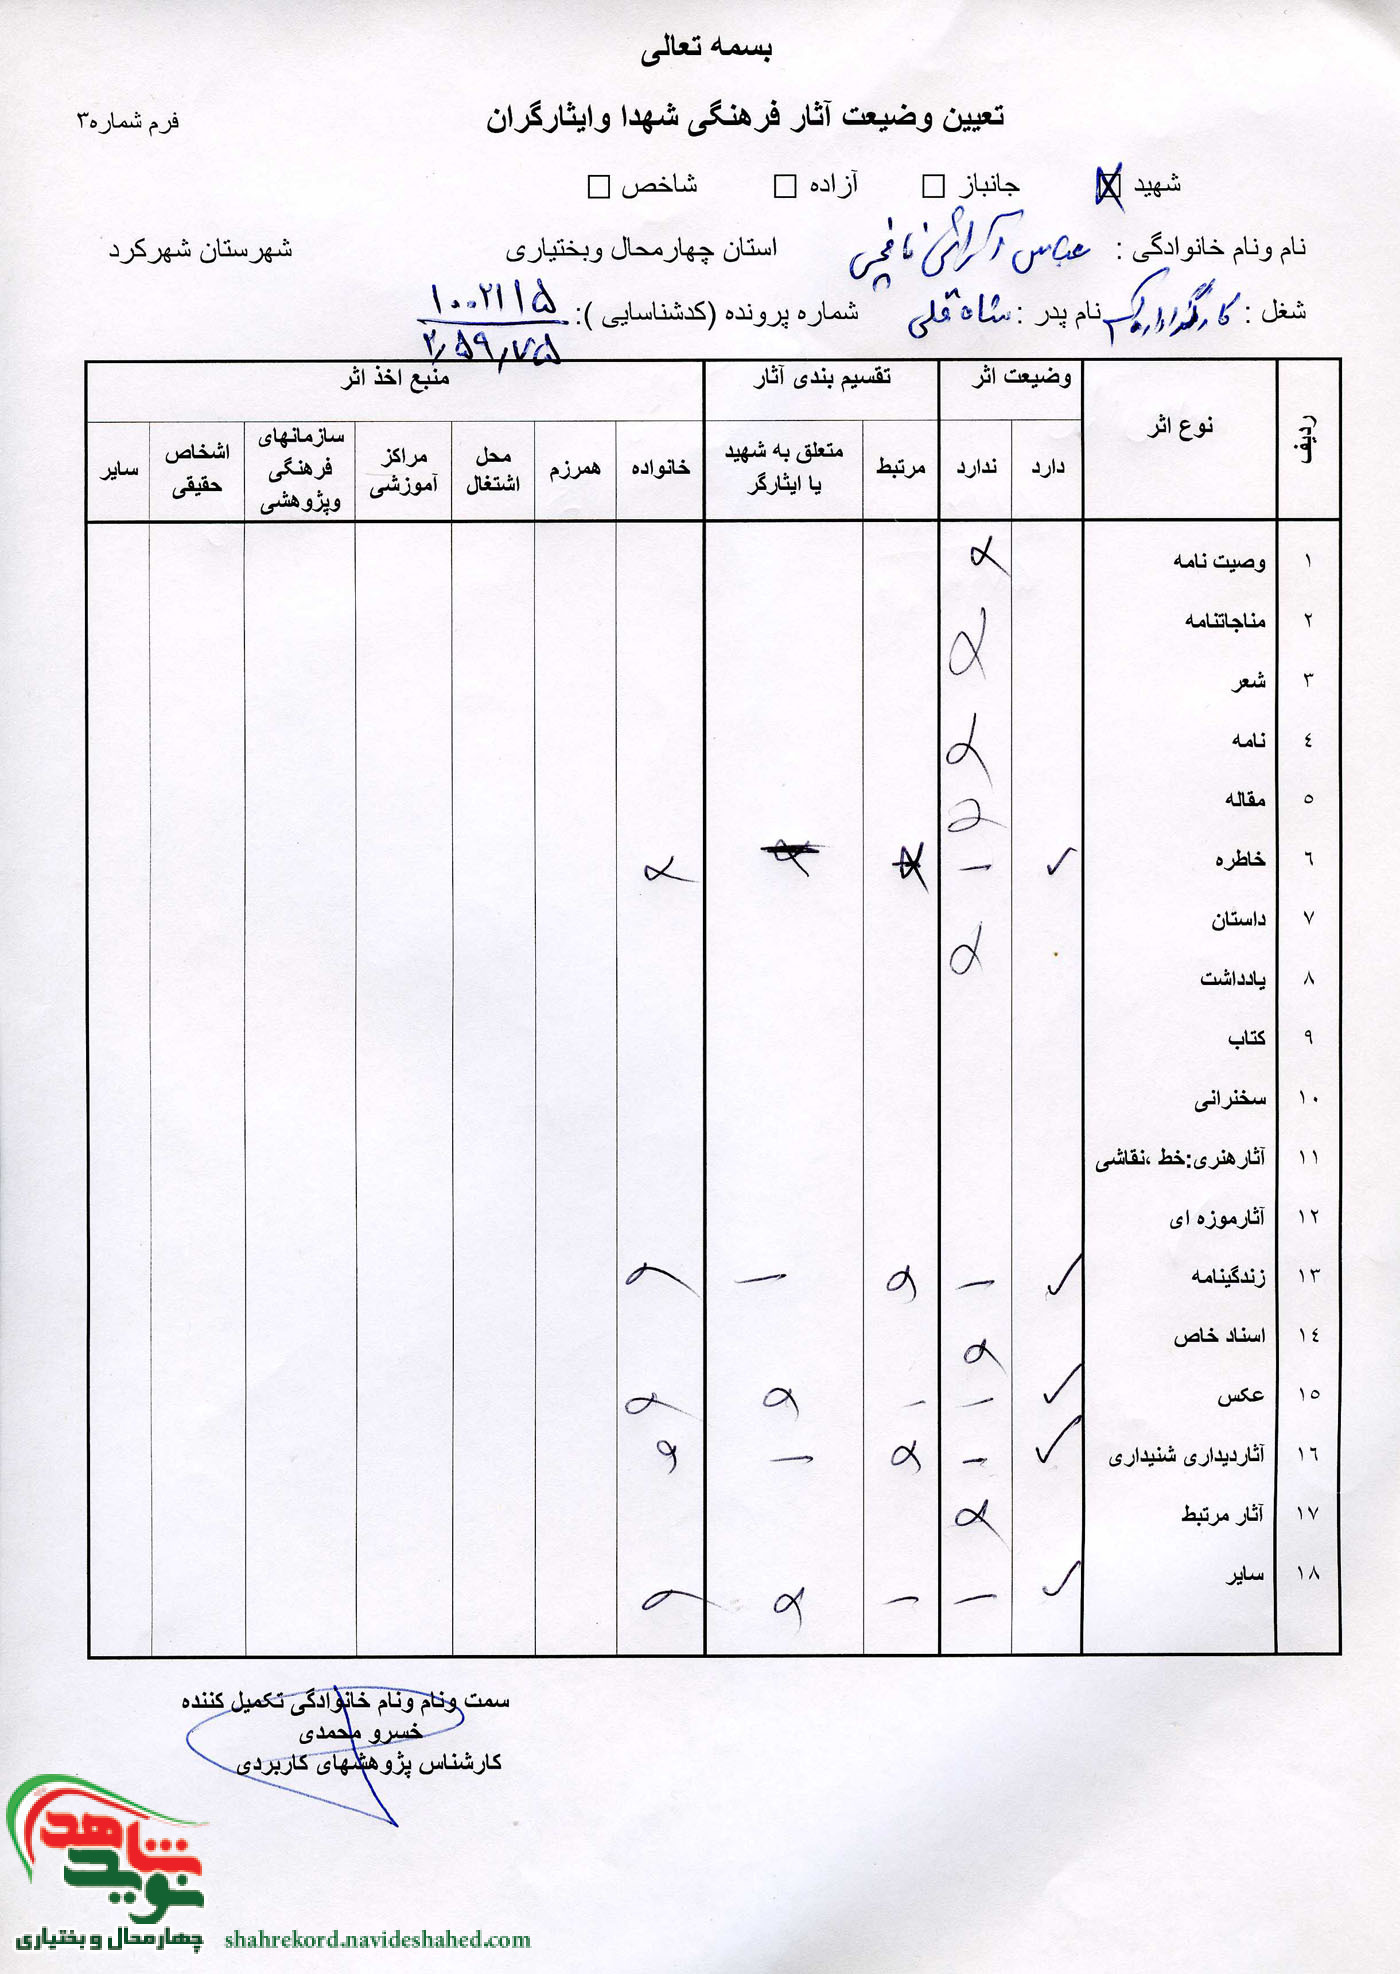 بسمه تعالی
تعیین وضیعت آثار فرهنگی شهدا وایثارگران
فرم شماره۳
شهید ☒ جانباز ☐ آزاده ☐ شاخص ☐
نام ونام خانوادگی : عباس نافچی استان چهارمحال وبختیاری شهرستان شهرکرد
شغل : نام پدر : شاه قلی شماره پرونده (کدشناسایی ): ۱۰۰۲۱۱۵
ردیف نوع اثر وضیعت اثر تقسیم بندی آثار منبع اخذ اثر
دارد ندارد مرتبط متعلق به شهید یا ایثارگر خانواده همرزم محل اشتغال مراکز آموزشی سازمانهای فرهنگی وپژوهشی اشخاص حقیقی سایر
۱ وصیت نامه
۲ مناجاتنامه
۳ شعر
٤ نامه
٥ مقاله
٦ خاطره ✓ –
۷ داستان
۸ یادداشت
۹ کتاب
۱۰ سخنرانی
۱۱ آثارهنری:خط ،نقاشی
۱۲ آثارموزه ای
۱۳ زندگینامه ✓ – –
۱٤ اسناد خاص
۱٥ عکس ✓ – –
۱٦ آثاردیداری شنیداری ✓ – –
۱۷ آثار مرتبط
۱۸ سایر ✓ – –
سمت ونام ونام خانوادگی تکمیل کننده
خسرو محمدی
کارشناس پژوهشهای کاربردی
نوید شاهد
چهارمحال و بختیاری
shahrekord.navideshahed.com